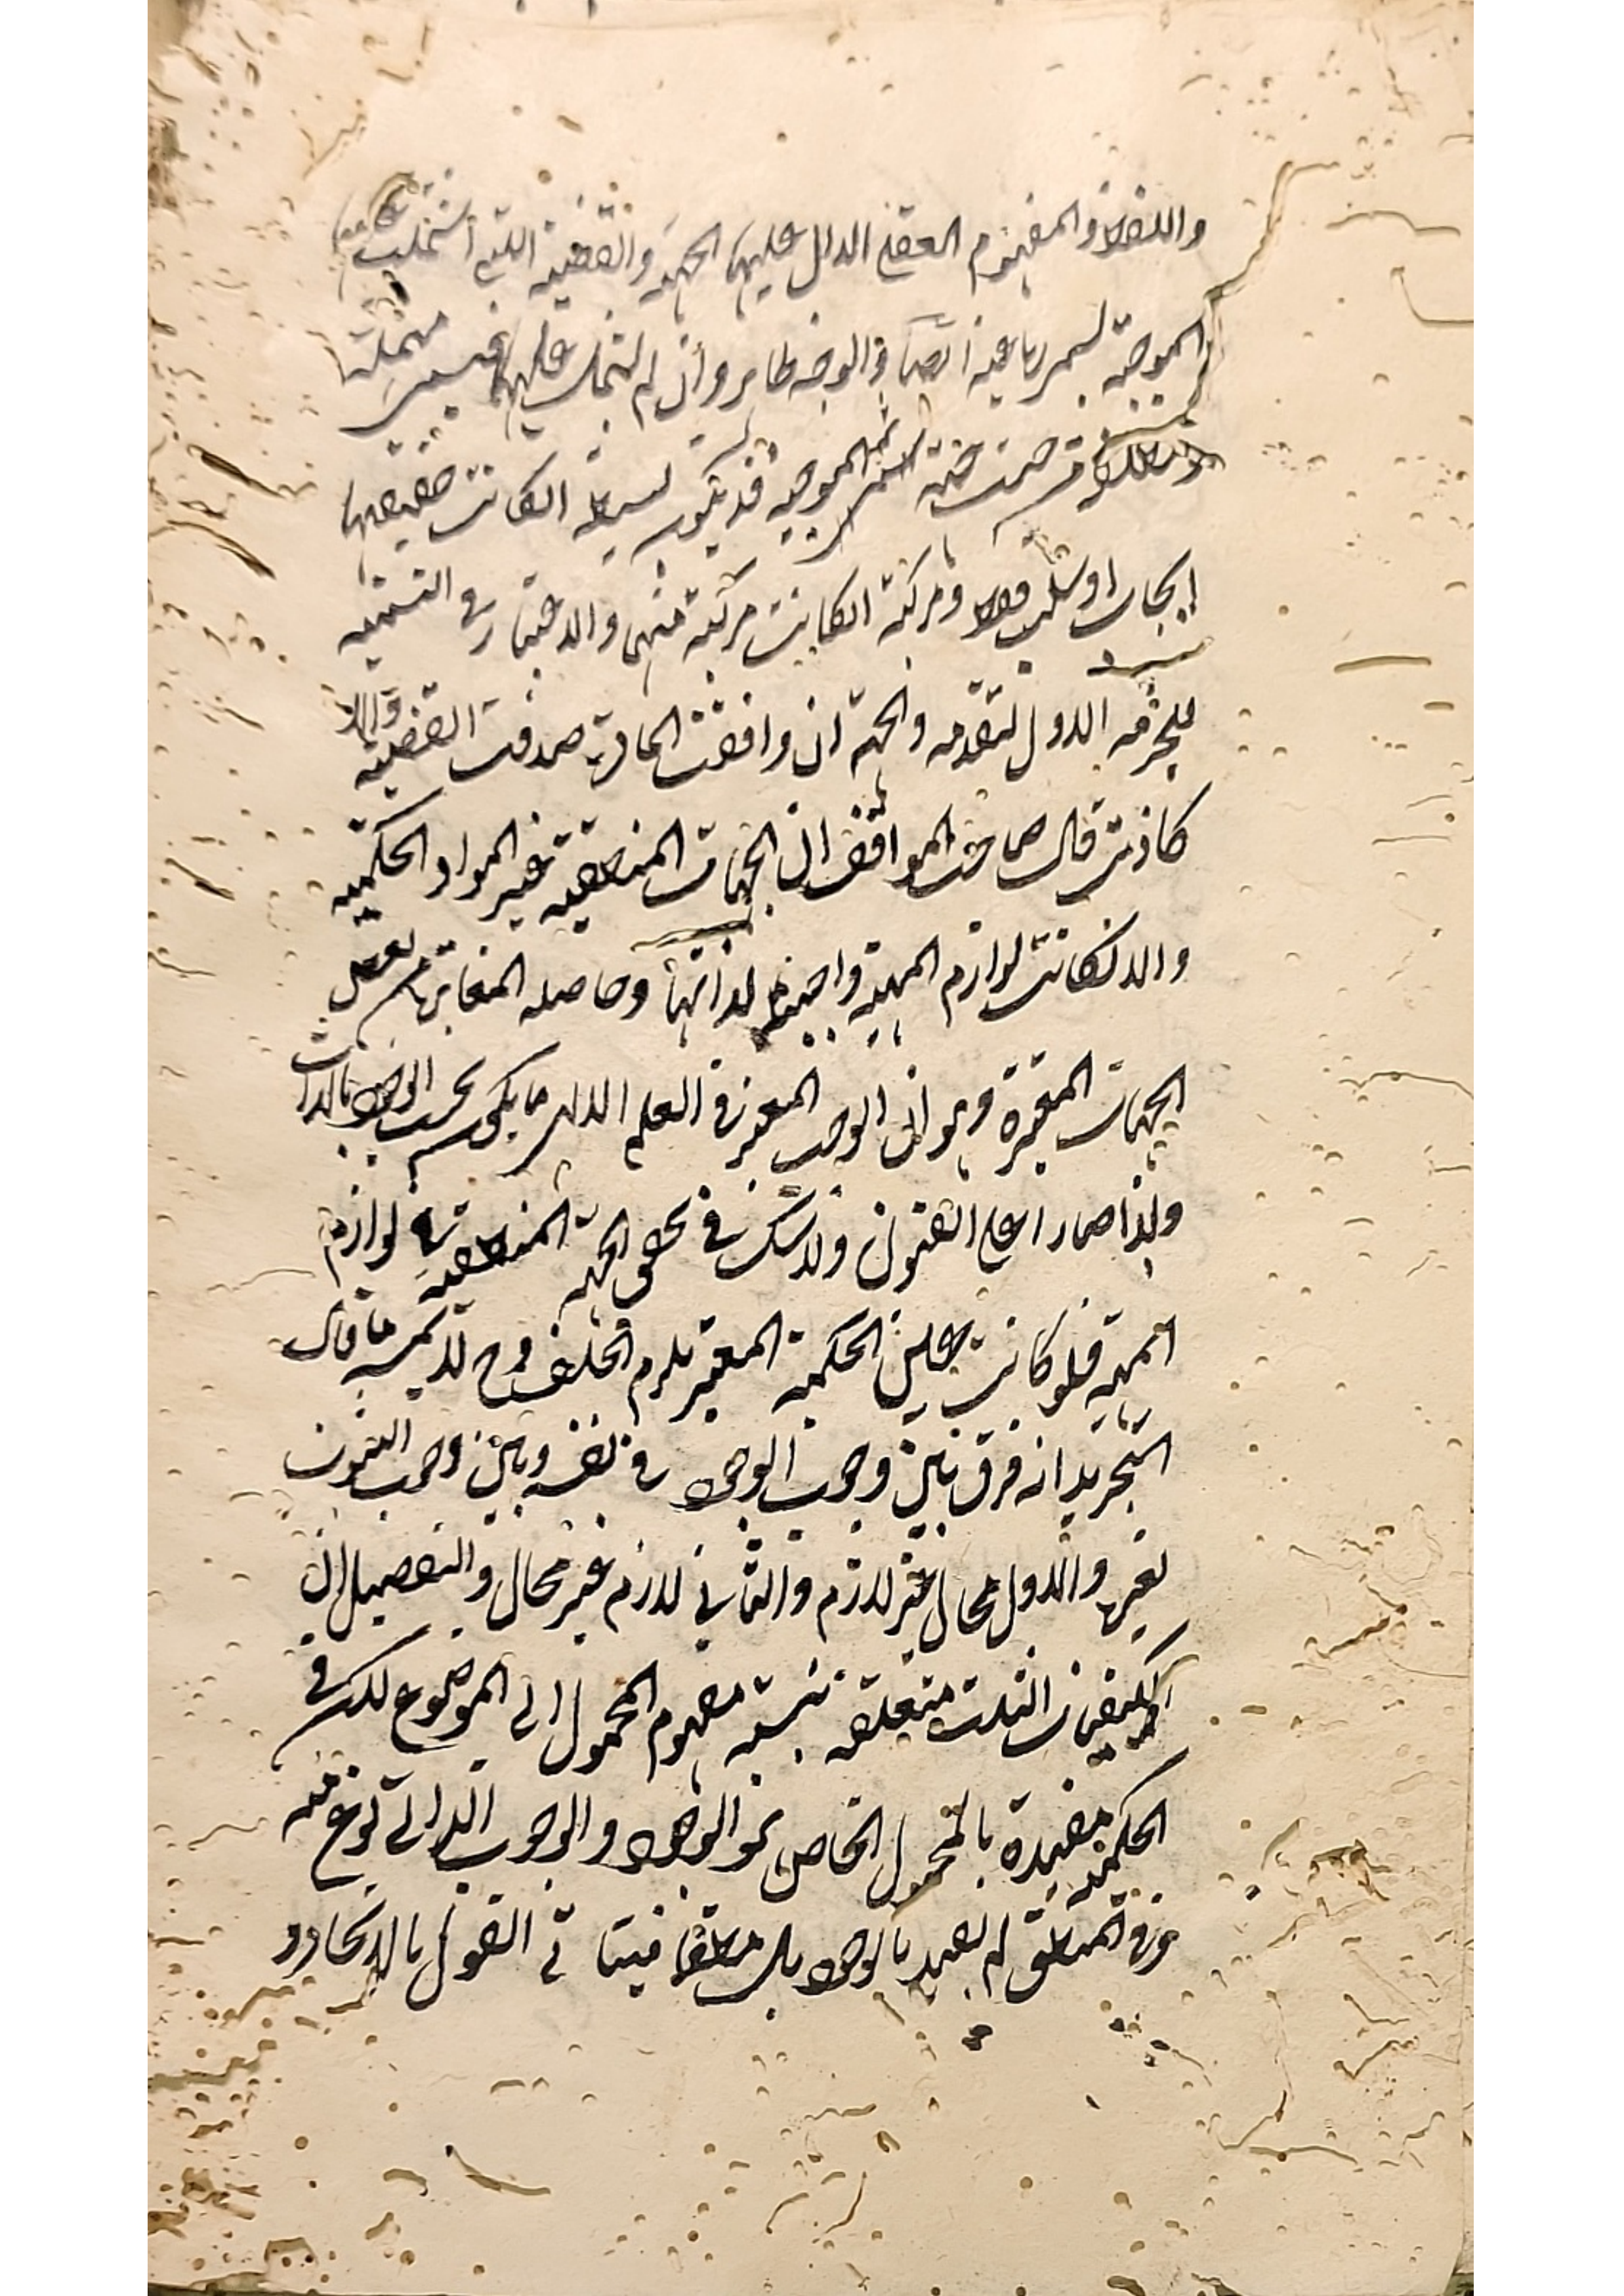 واللفظ او المفهوم العقلي الدال عليها الجهة والقضية التي اشتملت عليها
الموجهة تسمى رباعية ايضا والوجه ظاهر وان لم تشتمل عليها فيسمى مهملة
ومطلقة من حيث الجهة الموجهة قد تكون بسيطة ان كانت حقيقتها
ايجاب او سلب فقط ومركبة ان كانت مركبة منهما والاعتبار في التسمية
للجزء الاول لتقدمه والجهة ان وافقت المادة صدقت القضية والا
كاذبة قال صاحب المواقف ان الجهات المنطقية غير المواد الحكمية
والا لكانت لوازم المهية واجبة لذاتها وحاصله المغايرة بعض
الجهات المعتبرة وهو ان الوجوب المعتبر في العلم الالهي ما يكون بحسب الوجود بالذات
ولذا صار اعلى القنوان ولا شك في تحقق الجهة المنطقية في لوازم
المهية فلو كانت عين الحكمية المعتبر يلزم الخلف وح لا يمسه ما قال
التجريد انه فرق بين وجوب الوجود في نفسه وبين وجوب الثبوت
لغيرها والاول محال غير لازم والثاني لازم غير محال والتفصيل ان
الكيفيات الثلث متعلقة بنسبة مفهوم المحمول الى الموضوع لكن في
الحكمية مقيدة بالمحمول الخاص نحو الوجود والوجوب الذاتي نوع منه
وفي المنطق لم يقيد بالوجود بل مطلقا فيتأتى القول بالاتحاد و